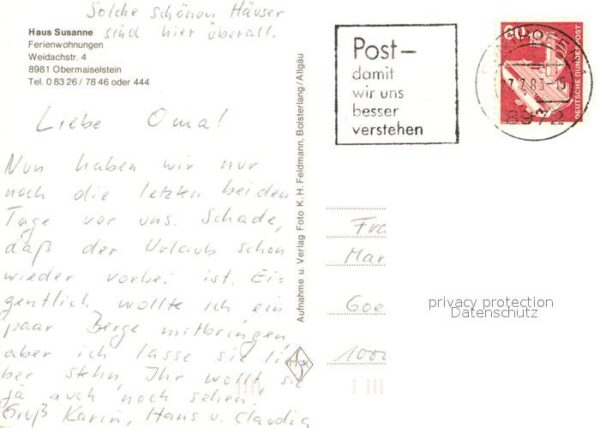 Solche schönen Häuser
sind hier überall.
Haus Susanne
Ferienwohnungen
Weidachstr. 4
8981 Obermaiselstein
Tel. 0 83 26 / 78 46 oder 444
Liebe Oma!
Nun haben wir nur
noch die letzten beiden
Tage vor uns. Schade,
daß der Urlaub schon
wieder vorbei ist. Ei-
gentlich wollte ich ein
paar Berge mitbringen,
aber ich lasse sie lie
ber stehn, Ihr wollt sie
ja auch noch sehen.
Gruß Karin, Hans u. Claudia
Aufnahme u. Verlag Foto K. H. Feldmann, Bolsterlang/Allgäu
Post–
damit
wir uns
besser
verstehen
60
DEUTSCHE BUNDESPOST
8972
Fra
Mar
Goe
1000
privacy protection
Datenschutz